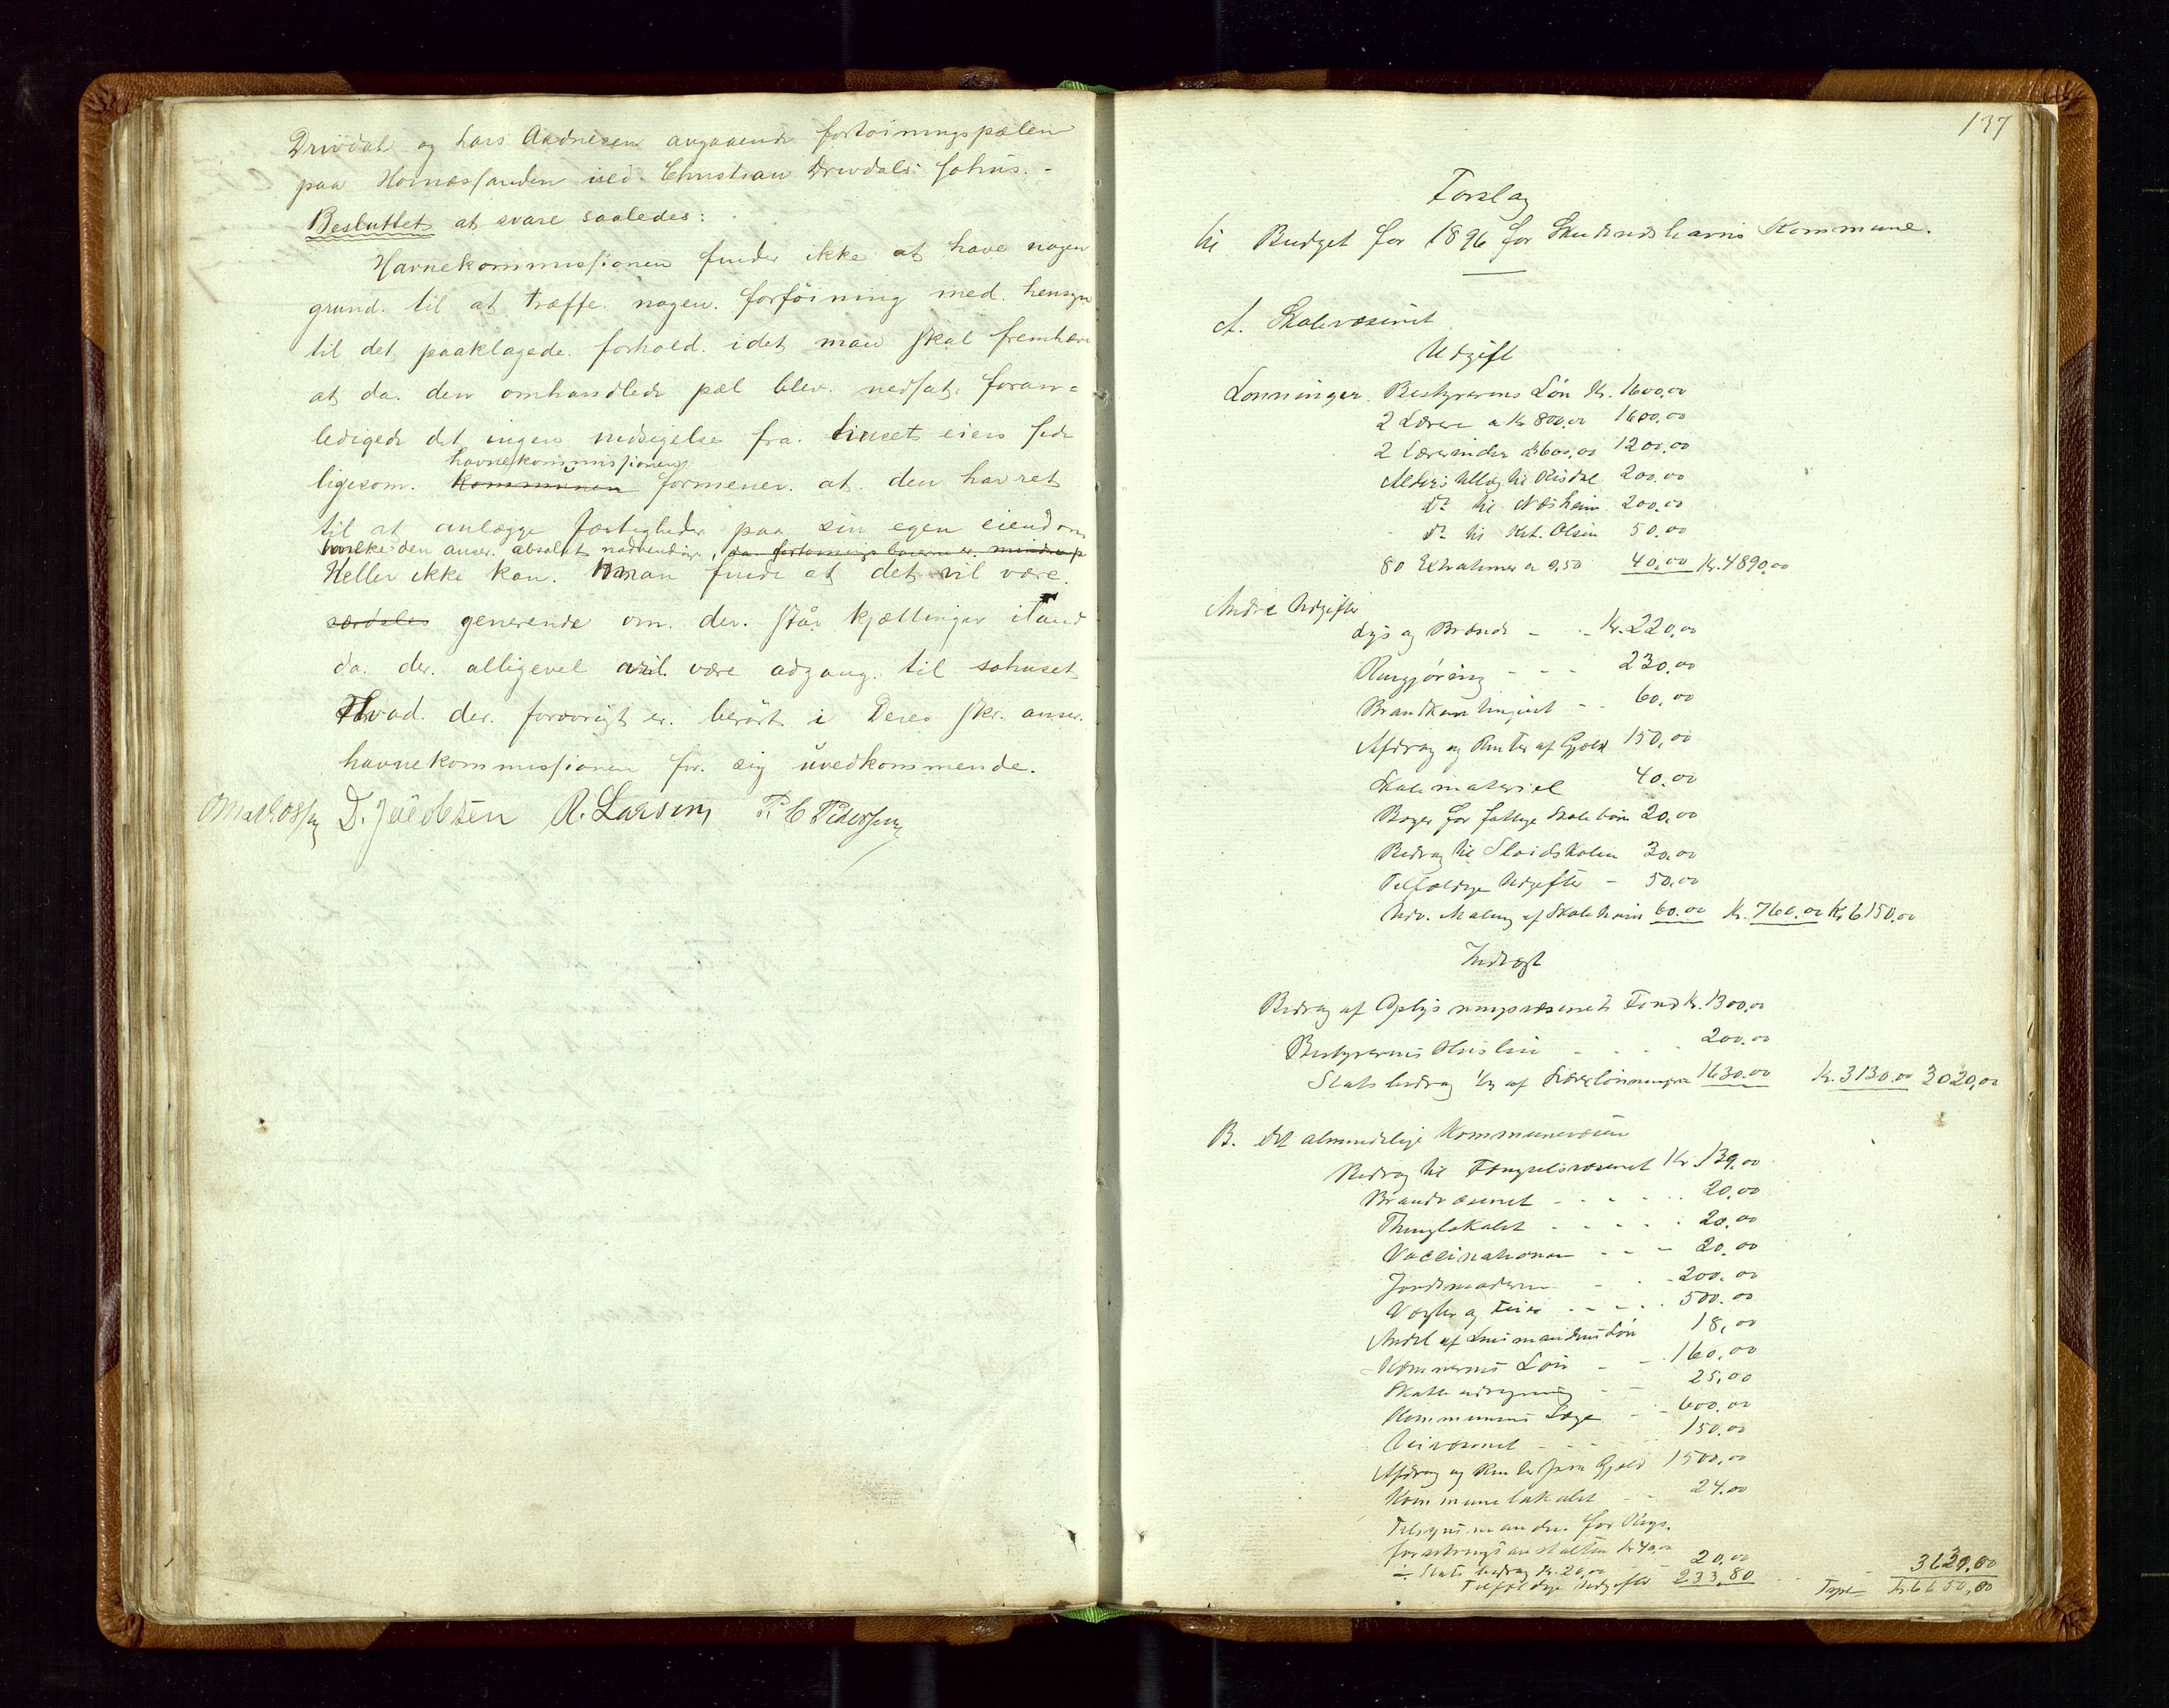 Drivdal og Lars Aadnesen angaaende fortøiningspælen
paa Hornæssanden ved Christian Drivdals søhus. -
Besluttet at svare saaledes:
Havnekommissionen finder ikke at have nogen
grund til at træffe nogen forføining med hensyn
til det paaklagede forhold idet man skal fremhæve
at da den omhandlede pæl blev nedsat foran=
ledigede det ingen indsigelse fra huset eiers side
havnekommissionen
ligesom kommunen formener at den har ret
til at anlægge fæstigheder paa sin egen eiendom
hvilke den anser absolut nødvendige, da fortøinings
Heller ikke kan man finde at det vil være
særdeles generende om der står kjættinger iland
da der alligevel vil være adgang til søhuset
Hvad der forøvrigt er berørt i Deres skr. anser
havnekommissionen for sig uvedkommende.
D. Jacobsen R. Larsen P. C. Pedersen
137
Forslag
til Budget for 1896 for Skudeneshavns Kommune.
A. Skolevæsenet
Udgift
Lønninger. Bestyrerens Løn Kr. 1600,00
2 Lærere a Kr 800,00 1600,00
2 Lærerinder a 600,00 1200,00
Alders tillæg til Risdal 200,00
do til Næsheim 200,00
do til Krt. Olsen 50,00
80 Extratimer a 0,50 40,00 Kr. 4890,00
Andre Udgifter
Lys og Brænde - - Kr. 220,00
Rengjøring - - - 230,00
Brandkontingent - - 60,00
Afdrag og Renter af Gjæld 150,00
Skolemateriel 40,00
Bøger for fattige Skolebørn 20,00
Bidrag til Sløidskolen 30,00
Tilfældige Udgifter - 50,00
Udv. Maling af Skolehuset 60,00 Kr. 760,00 Kr 6150,00
Indtægt
Bidrag af Oplysningsvæsenets Fond Kr. 1300,00
Bestyrerens Husleie - - - 200,00
Statsbidrag 1/3 af Lærerlønninger 1630,00 Kr. 3130,00 3020,00
B. Det almindelige Kommunevæsen
Bidrag til Fængselsvæsenet Kr 139,00
Brandvæsenet - - - - 20,00
Thinglokalet - - - - 20,00
Vaccinationen - - - 20,00
Jordemoderen - - 200,00
Vægter og Feier - - - 500,00
Andel af Lensmandens Løn 18,00
Kæmnerens Løn - - 160,00
Skatteudregning - - 25,00
Kommunens Læge - - 600,00
Veivæsenet - - - 150,00
Afdrag og Renter paa Gjæld 1500,00
Kommunelokalet - - 24,00
Tilsynsmanden for Rigs.
forsikringsanstalten Kr 40,00
÷ Stats bidrag Kr. 20,00 - 20,00
Tilfældige Udgifter 233,80 - - 3620,00
Transp. Kr. 6650,80